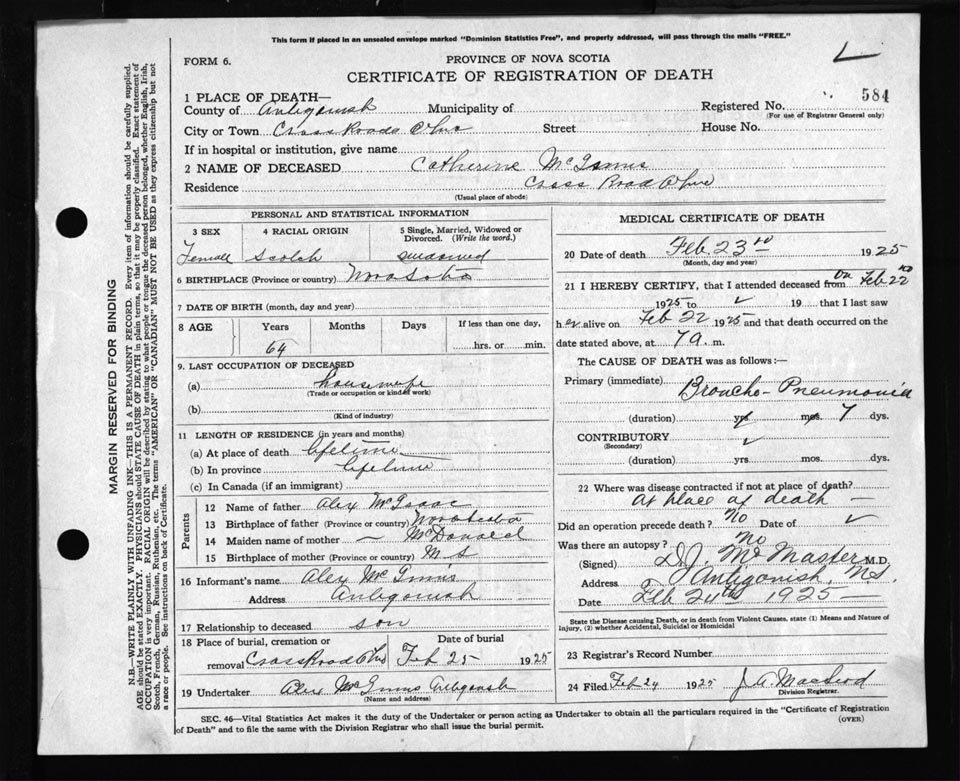 This form if placed in an unsealed envelope marked "Dominion Statistics Free", and properly addressed, will pass through the mails "FREE."
FORM 6.
PROVINCE OF NOVA SCOTIA
CERTIFICATE OF REGISTRATION OF DEATH
1 PLACE OF DEATH—
County of Antigonish Municipality of Registered No. 584
(For use of Registrar General only)
City or Town Cross Roads Ohio Street House No.
If in hospital or institution, give name
2 NAME OF DECEASED Catherine McInnis
Residence Cross Road Ohio
(Usual place of abode)
PERSONAL AND STATISTICAL INFORMATION
3 SEX 4 RACIAL ORIGIN 5 Single, Married, Widowed or Divorced. (Write the word.)
Female Scotch
6 BIRTHPLACE (Province or country) Nova Scotia
7 DATE OF BIRTH (month, day and year)
8 AGE Years Months Days If less than one day,
64 hrs. or min.
9. LAST OCCUPATION OF DECEASED
(a) housewife
(Trade or occupation or kind of work)
(b)
(Kind of industry)
11 LENGTH OF RESIDENCE (in years and months)
(a) At place of death lifetime
(b) In province lifetime
(c) In Canada (if an immigrant)
Parents
12 Name of father Alex McIsaac
13 Birthplace of father (Province or country) Nova Scotia
14 Maiden name of mother — McDonald
15 Birthplace of mother (Province or country) N S
16 Informant's name Alex McInnis
Address Antigonish
17 Relationship to deceased son
18 Place of burial, cremation or removal Cross Road Ohio Date of burial Feb 25 1925
19 Undertaker Alex McInnis Antigonish
(Name and address)
MEDICAL CERTIFICATE OF DEATH
20 Date of death Feb. 23rd 1925
(Month, day and year)
21 I HEREBY CERTIFY, that I attended deceased from On Feb 22nd
1925 to ✓ 19 that I last saw
her alive on Feb 22 1925 and that death occurred on
date stated above, at 7 a. m.
The CAUSE OF DEATH was as follows:—
Primary (immediate) Broncho-Pneumonia
(duration) yrs mos. 7 dys.
CONTRIBUTORY ✓
(Secondary)
(duration) yrs. mos. dys.
22 Where was disease contracted if not at place of death?
At place of death —
Did an operation precede death? No Date of ✓
Was there an autopsy? No
(Signed) D.J. McMaster M.D.
Address Antigonish, N.S.
Date Feb 24th 1925 —
State the Disease causing Death, or in death from Violent Causes, state (1) Means and Nature of Injury, (2) whether Accidental, Suicidal or Homicidal
23 Registrar's Record Number
24 Filed Feb 24 1925 J. A. Macleod
Division Registrar.
SEC. 46—Vital Statistics Act makes it the duty of the Undertaker or person acting as Undertaker to obtain all the particulars required in the "Certificate of Registration
of Death" and to file the same with the Division Registrar who shall issue the burial permit.
(OVER)
MARGIN RESERVED FOR BINDING
N.B.—WRITE PLAINLY WITH UNFADING INK—THIS IS A PERMANENT RECORD. Every item of information should be carefully supplied.
AGE should be stated EXACTLY. PHYSICIANS should STATE CAUSE OF DEATH in plain terms, so that it may be properly classified. Exact statement of
OCCUPATION is very important. RACIAL ORIGIN will be described by stating to what people or tongue the deceased person belonged, whether English, Irish,
Scotch, French, German, Russian, Ruthenian, etc. The terms "AMERICAN" OR "CANADIAN" MUST NOT BE USED as they express citizenship but not
a race or people. See instructions on back of Certificate.